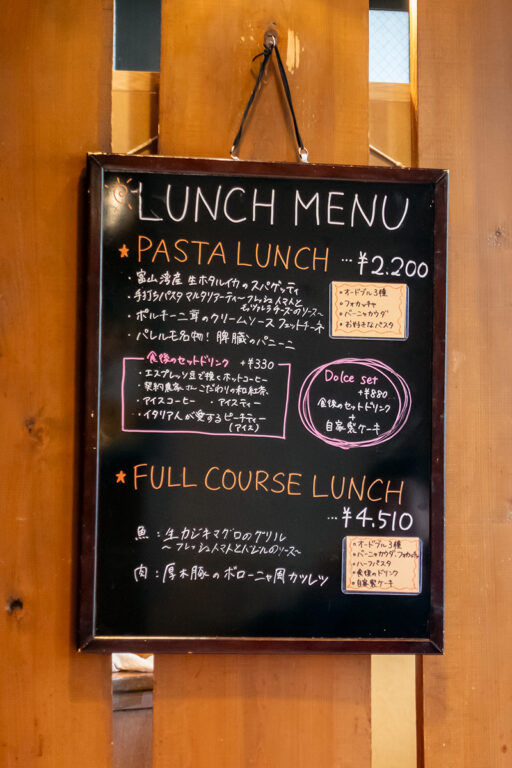 LUNCH MENU
★PASTA LUNCH …¥2.200
・富山湾産 生ホタルイカのスパゲッティ
・手打ちパスタ マルタリアーティ〜フレッシュトマトと
モッツァレラチーズのソース〜
・ポルチーニ茸のクリームソース フェットチーネ
・パレルモ名物! 脾臓のパニーニ
・オードブル3種
・フォカッチャ
・バーニャカウダ
・お好きなパスタ
食後のセットドリンク +¥330
・エスプレッソ豆で挽くホットコーヒー
・契約農家 こだわりの和紅茶
・アイスコーヒー ・アイスティー
・イタリア人が愛するピーチティー
(アイス)
Dolce set
+¥880
食後のセットドリンク
+
自家製ケーキ
★FULL COURSE LUNCH
…¥4,510
魚:生カジキマグロのグリル
〜フレッシュトマトとバジルのソース〜
肉:厚木豚のボローニャ風カツレツ
・オードブル3種
・バーニャカウダ、フォカッチャ
・ハーフパスタ
・食後のドリンク
・自家製ケーキ